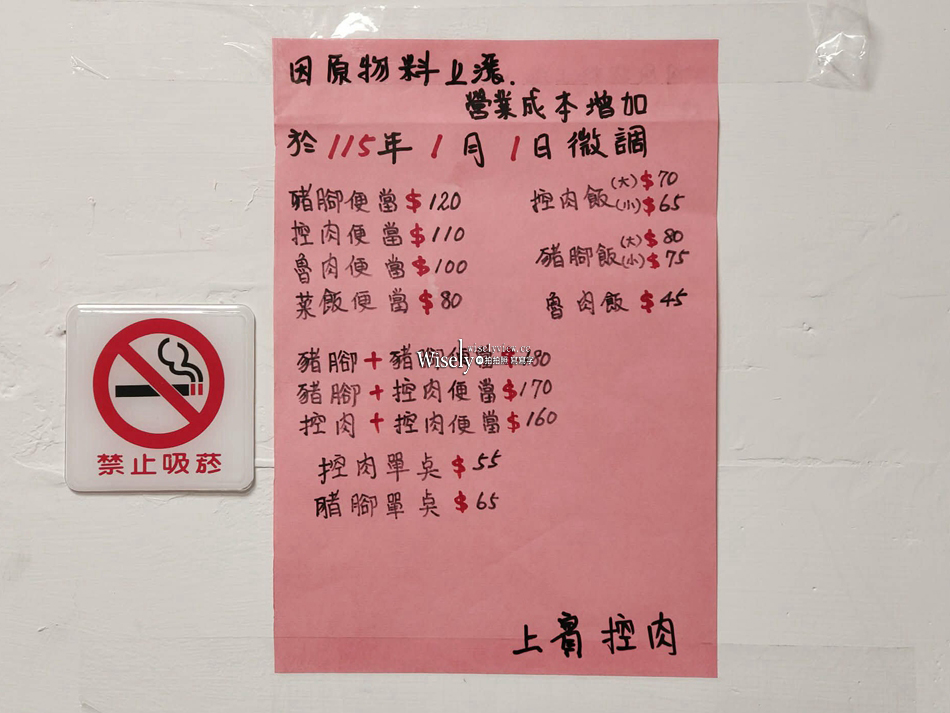 因原物料上漲.
營業成本增加
於115年1月1日微調
豬腳便當$120
控肉便當$110
魯肉便當$100
菜飯便當$80
控肉飯(大)$70
(小)$65
豬腳飯(大)$80
(小)$75
魯肉飯 $45
豬腳+豬腳便當$180
豬腳+控肉便當$170
控肉+控肉便當$160
控肉單点 $55
豬腳單点 $65
上賓控肉
禁止吸菸
wiselyview.cc
Wisely
拍拍照 寫寫字